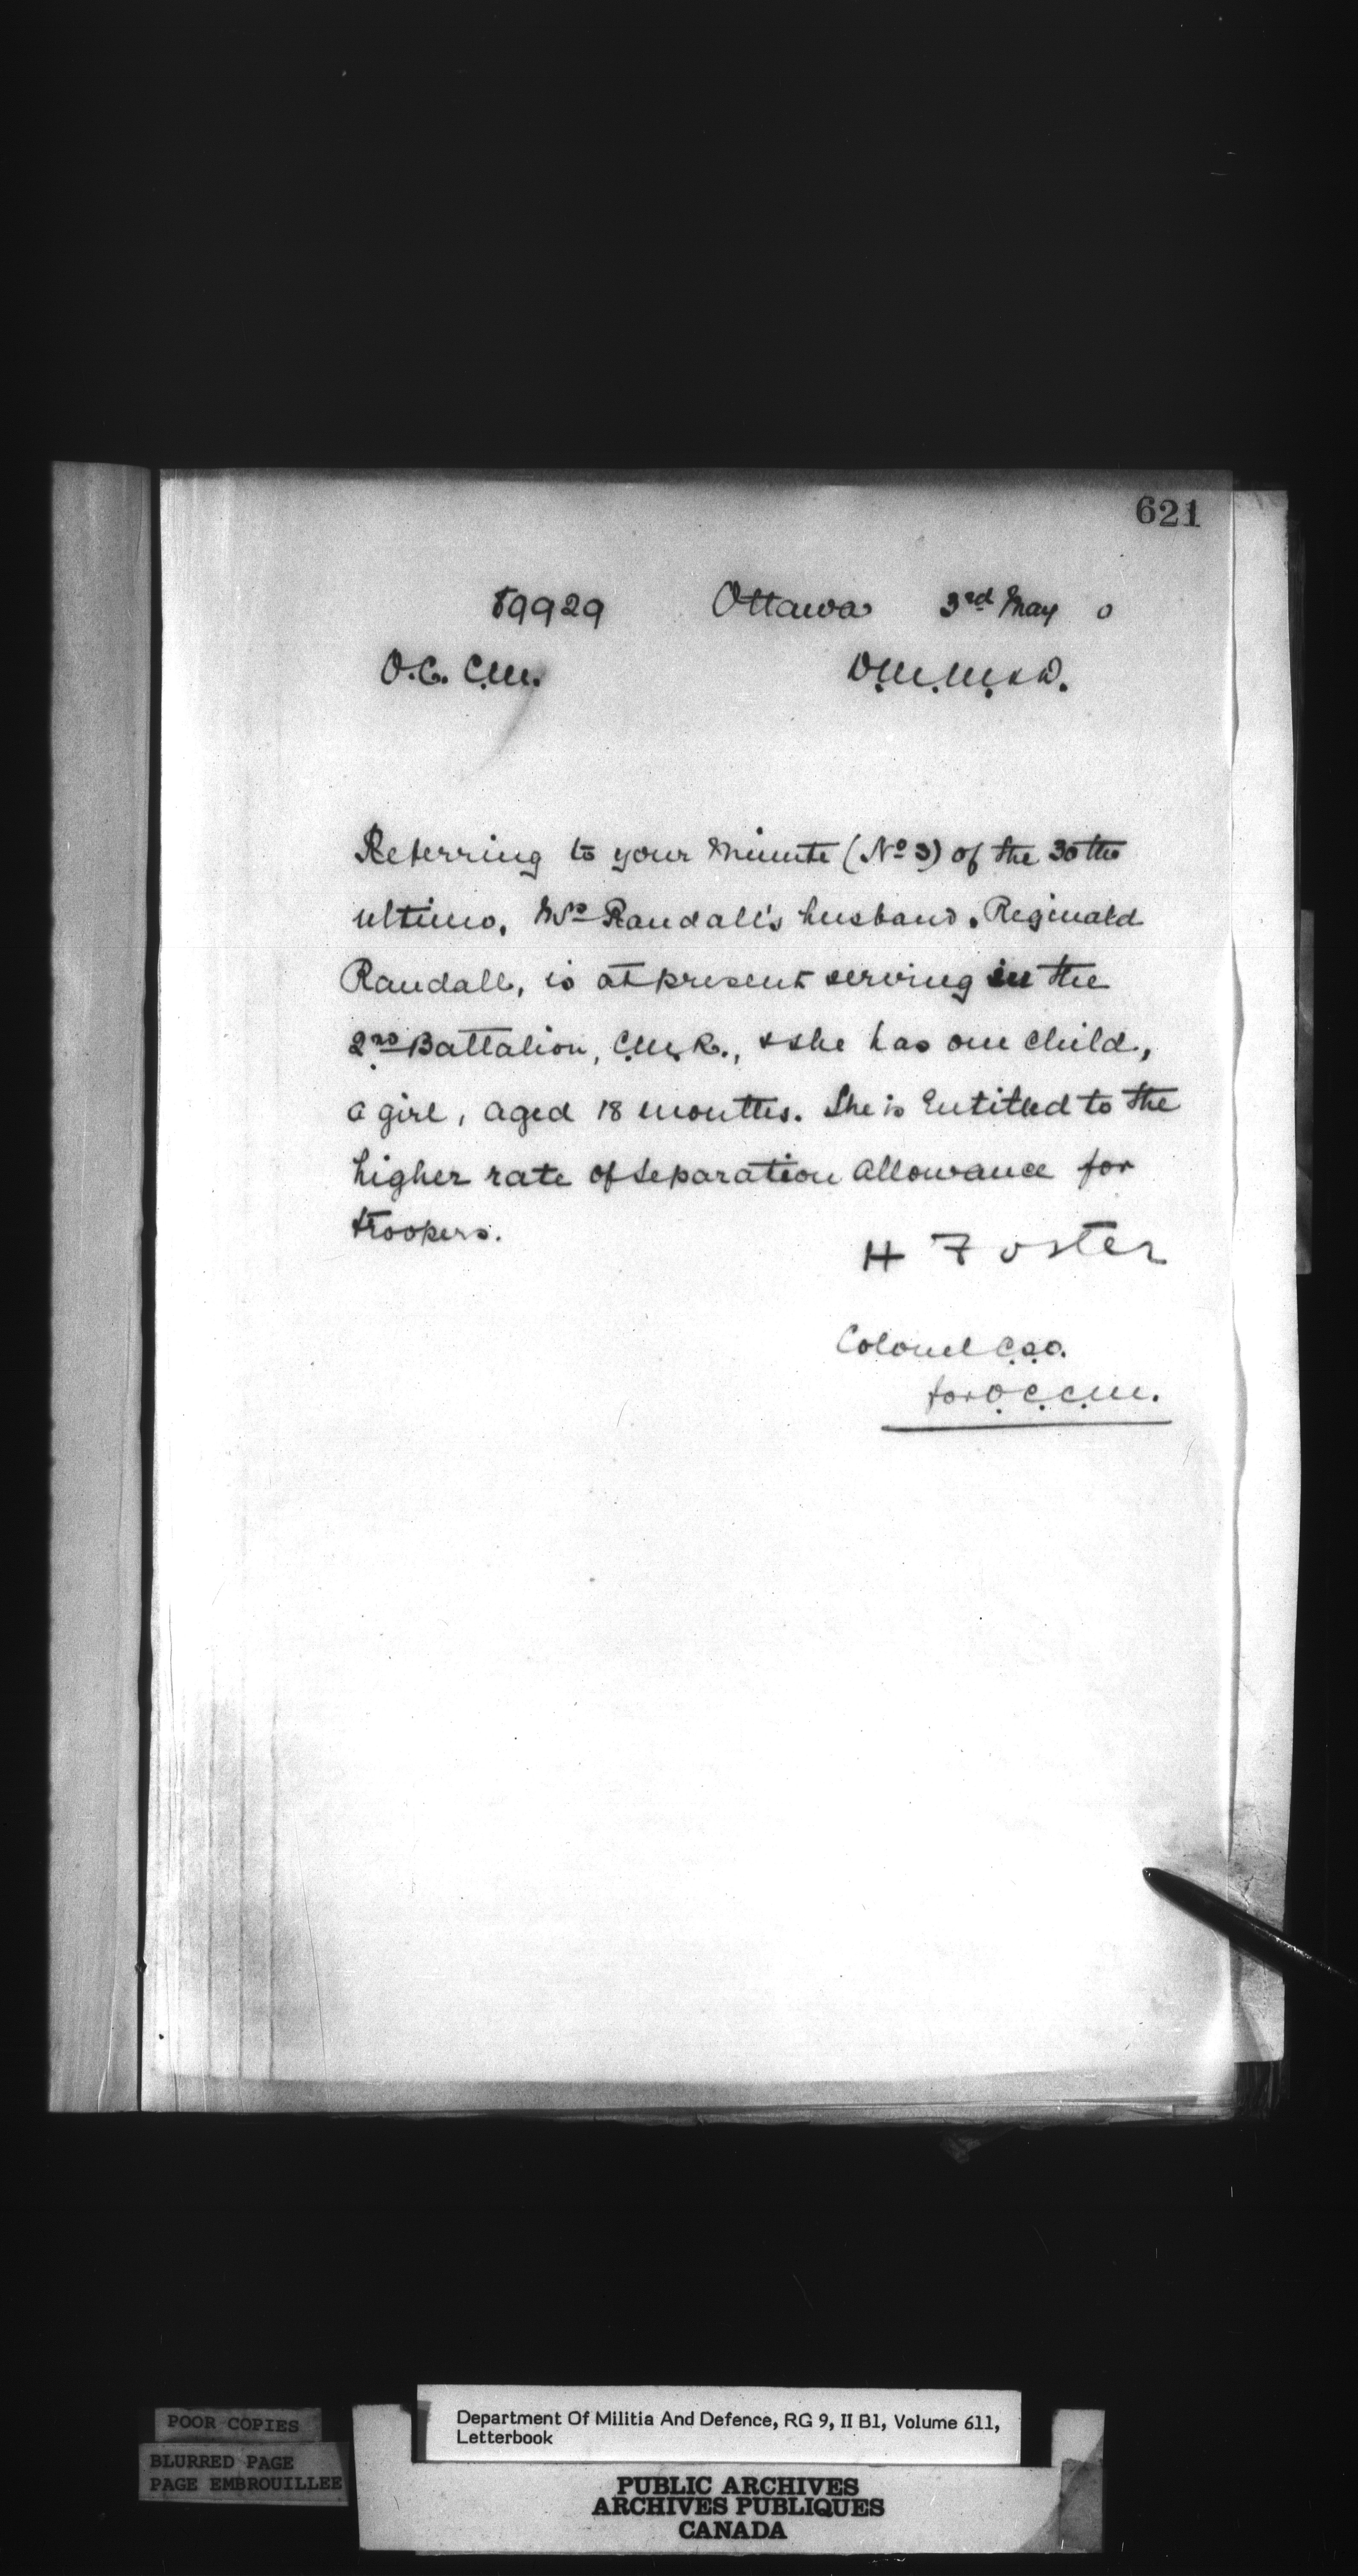 621
89929 Ottawa 3rd May 0
O.C. C.M. D.M.M.&D.
Referring to your Minute (No 3) of the 30th
ultimo, Mrs Randall's husband, Reginald
Randall, is at present serving in the
2nd Battalion, C.M.R., & she has one child,
a girl, aged 18 months. She is Entitled to the
higher rate of Separation Allowance for
troopers.
H Foster
Colonel C.S.O.
for O.C.C.M.
Department Of Militia And Defence, RG 9, II B1, Volume 611,
Letterbook
POOR COPIES
BLURRED PAGE
PAGE EMBROUILLEE
PUBLIC ARCHIVES
ARCHIVES PUBLIQUES
CANADA